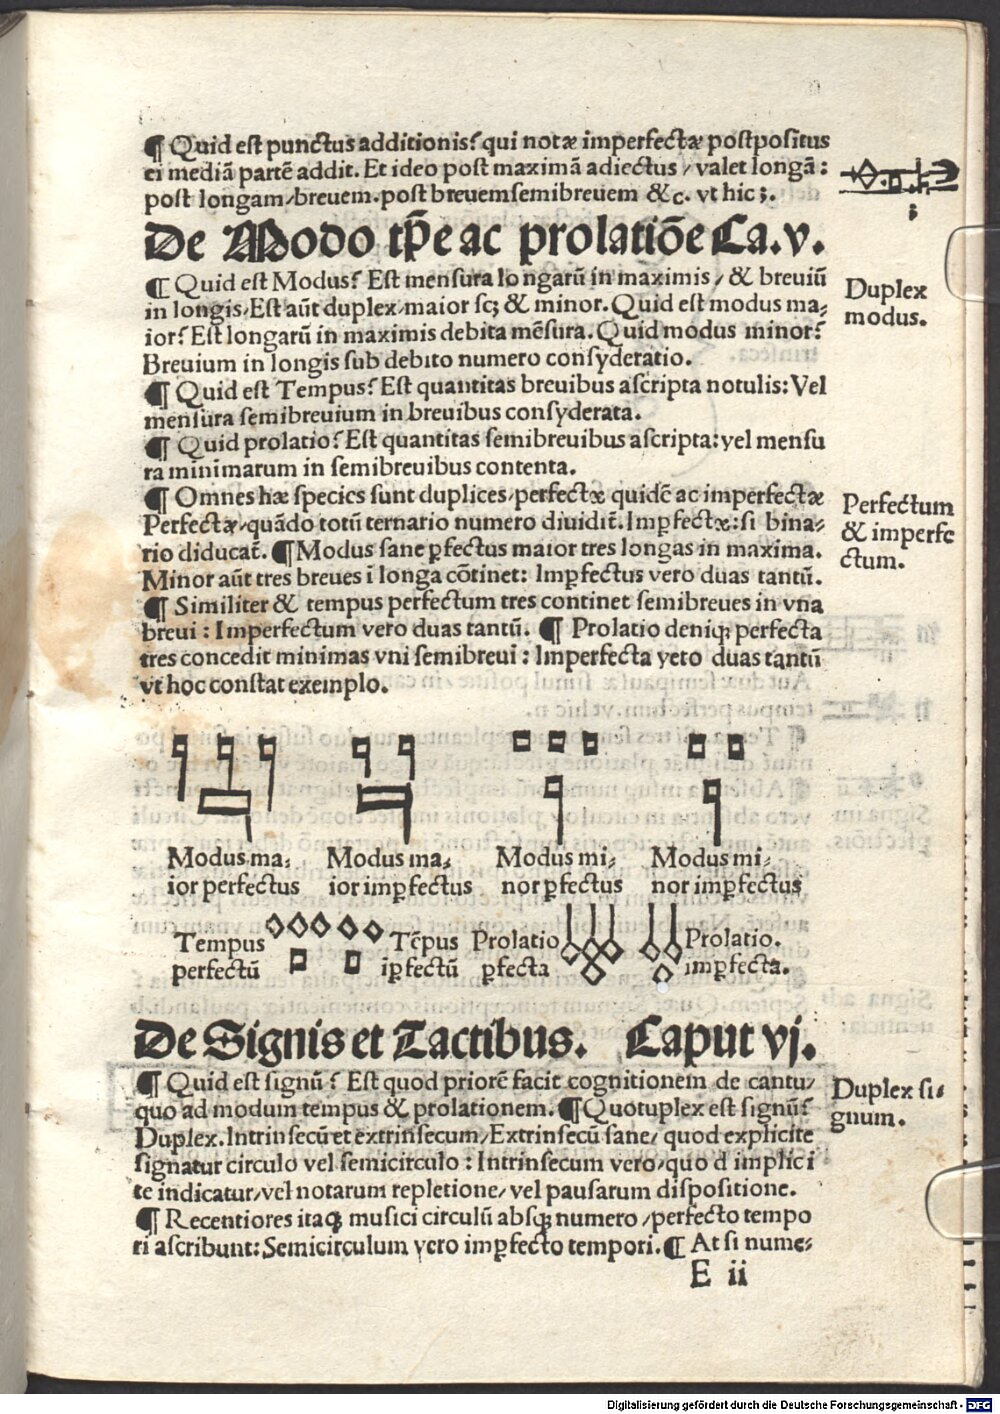 ¶ Quid est punctus additionis? qui notæ imperfectæ postpositus
ei mediā partē addit. Et ideo post maximā adiectus / valet longā :
post longam / breuem. post breuem semibreuem &c. vt hic ;.
De Modo tp̄e ac prolatiōe Ca. v.
¶ Quid est Modus? Est mensura longarū in maximis / & breuiū
in longis / Est aūt duplex / maior sc; & minor. Quid est modus ma⸗
ior? Est longarū in maximis debita mēsura. Quid modus minor?
Breuium in longis sub debito numero consyderatio.
Duplex
modus.
¶ Quid est Tempus? Est quantitas breuibus ascripta notulis: Vel
mensura semibreuium in breuibus consyderata.
¶ Quid prolatio? Est quantitas semibreuibus ascripta: vel mensu
ra minimarum in semibreuibus contenta.
¶ Omnes hæ species sunt duplices / perfectæ quidē ac imperfectæ
Perfectæ / quādo totū ternario numero diuidit̄. Imꝑfectæ: si bina⸗
rio diducat̄. ¶ Modus sane ꝑfectus maior tres longas in maxima.
Minor aūt tres breues ī longa cōtinet: Imꝑfectus vero duas tantū.
Perfectum
& imperfe
ctum.
¶ Similiter & tempus perfectum tres continet semibreues in vna
breui : Imperfectum vero duas tantū. ¶ Prolatio deniqꝫ perfecta
tres concedit minimas vni semibreui : Imperfecta vero duas tantū
vt hoc constat exemplo.
Modus ma⸗ Modus ma⸗ Modus mi⸗ Modus mi⸗
ior perfectus ior imꝑfectus nor ꝑfectus nor imꝑfectus
Tempus Tēpus Prolatio Prolatio.
perfectū iꝑfectū ꝑfecta imꝑfecta.
De Signis et Tactibus. Caput vj.
¶ Quid est signū? Est quod priorē facit cognitionem de cantu /
quo ad modum tempus & prolationem. ¶ Quotuplex est signū?
Duplex. Intrinsecū et extrinsecum / Extrinsecū sane / quod explicite
signatur circulo vel semicirculo : Intrinsecum vero / quo d implici
te indicatur / vel notarum repletione / vel pausarum dispositione.
Duplex si⸗
gnum.
¶ Recentiores itaqꝫ musici circulū absqꝫ numero / perfecto tempo
ri ascribunt: Semicirculum vero imꝑfecto tempori. ¶ At si nume⸗
E ii
Digitalisierung gefördert durch die Deutsche Forschungsgemeinschaft - DFG